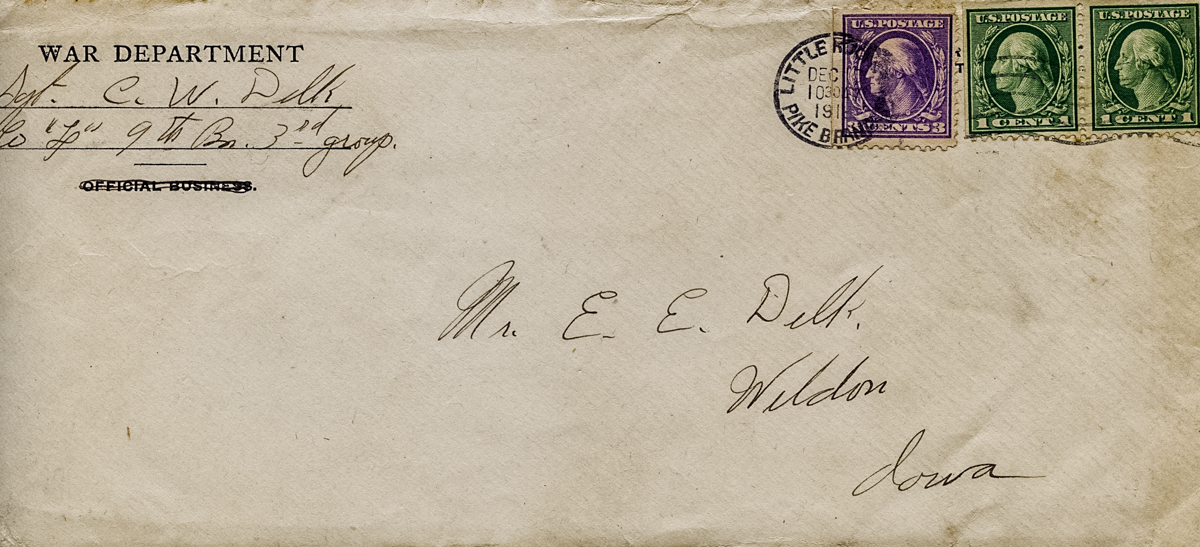 WAR DEPARTMENT
Sgt. C. W. Delk
Co "L" 9th Bn. 3rd group.
OFFICIAL BUSINESS.
LITTLE ROCK
DEC
1030
191
PIKE BRANCH
U.S. POSTAGE
CENTS 3
U.S. POSTAGE
1 CENT 1
U.S. POSTAGE
1 CENT 1
Mr. E. E. Delk.
Weldon
Iowa